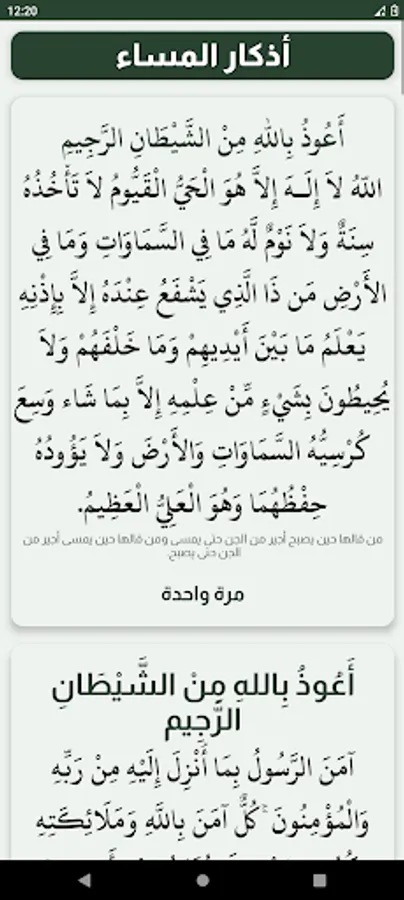 12:20
أذكار المساء
أَعُوذُ بِاللهِ مِنْ الشَّيْطَانِ الرَّجِيمِ
اللّهُ لاَ إِلَـهَ إِلاَّ هُوَ الْحَيُّ الْقَيُّومُ لاَ تَأْخُذُهُ
سِنَةٌ وَلاَ نَوْمٌ لَّهُ مَا فِي السَّمَاوَاتِ وَمَا فِي
الأَرْضِ مَن ذَا الَّذِي يَشْفَعُ عِنْدَهُ إِلاَّ بِإِذْنِهِ
يَعْلَمُ مَا بَيْنَ أَيْدِيهِمْ وَمَا خَلْفَهُمْ وَلاَ
يُحِيطُونَ بِشَيْءٍ مِّنْ عِلْمِهِ إِلاَّ بِمَا شَاء وَسِعَ
كُرْسِيُّهُ السَّمَاوَاتِ وَالأَرْضَ وَلاَ يَؤُودُهُ
حِفْظُهُمَا وَهُوَ الْعَلِيُّ الْعَظِيمُ.
من قالها حين يصبح أجير من الجن حتى يمسى ومن قالها حين يمسى أجير من
الجن حتى يصبح.
مرة واحدة
أَعُوذُ بِاللهِ مِنْ الشَّيْطَانِ
الرَّجِيمِ
آمَنَ الرَّسُولُ بِمَا أُنْزِلَ إِلَيْهِ مِنْ رَبِّهِ
وَالْمُؤْمِنُونَ ۚ كُلٌّ آمَنَ بِاللَّهِ وَمَلَائِكَتِهِ